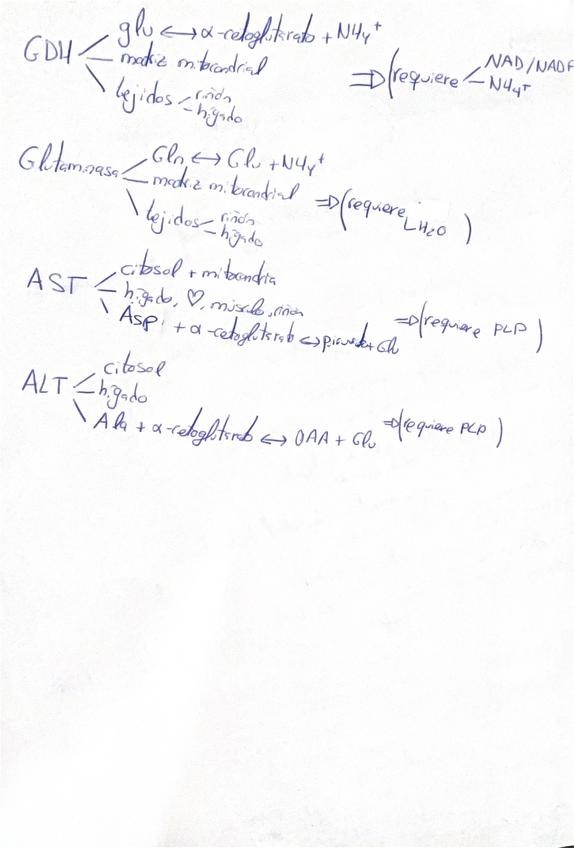 glu ↔ α-cetoglutarato + NH4+
GDH matriz mitocondrial ⇒ (requiere NAD/NADP
NH4+
tejidos riñón
hígado
Gln ↔ Glu + NH4+
Glutaminasa matriz mitocondrial ⇒ (requiere H2O )
tejidos riñón
hígado
citosol + mitocondria
AST hígado, ♡, músculo, riñón ⇒ (requiere PLP )
Asp + α-cetoglutarato ↔ piruvato + Glu
citosol
ALT hígado
Ala + α-cetoglutarato ↔ OAA + Glu ⇒ (requiere PLP )